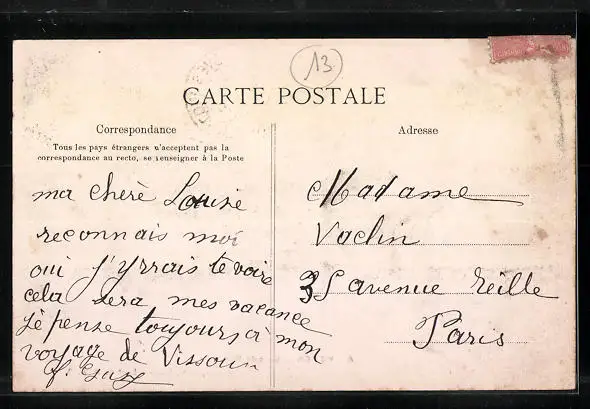 13
CARTE POSTALE
Correspondance
Tous les pays étrangers n'acceptent pas la
correspondance au recto, se renseigner à la Poste
ma cherè Louise
reconnais moi
oui j'yrrais te voire
cela sera mes vacance
jè pense toujours à mon
voyage de
Adresse
Madame
Vachin
35 avenue reille
Paris